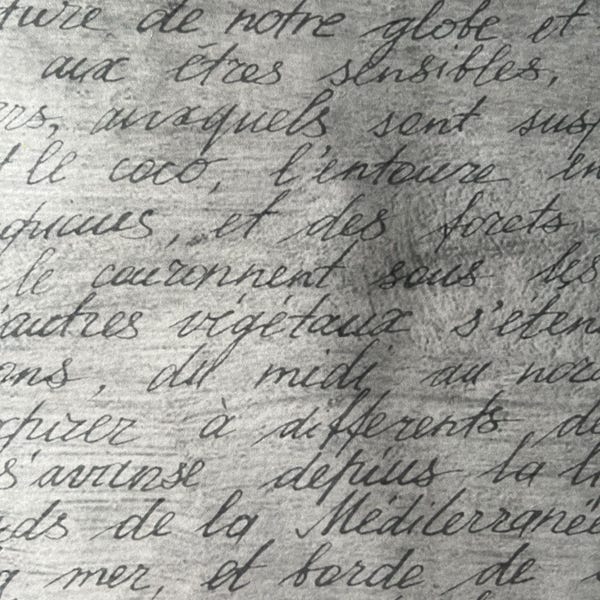 ture de notre globe et
aux êtres sensibles,
ers, auxquels sont sus
t le coco, l'entoure en
et des forets
le couronnent sous les
'autres végétaux s'éten
ans, du midi au nord
à différents de
s'avanse depius la li
ds de la Méditerranée
mer, et borde de